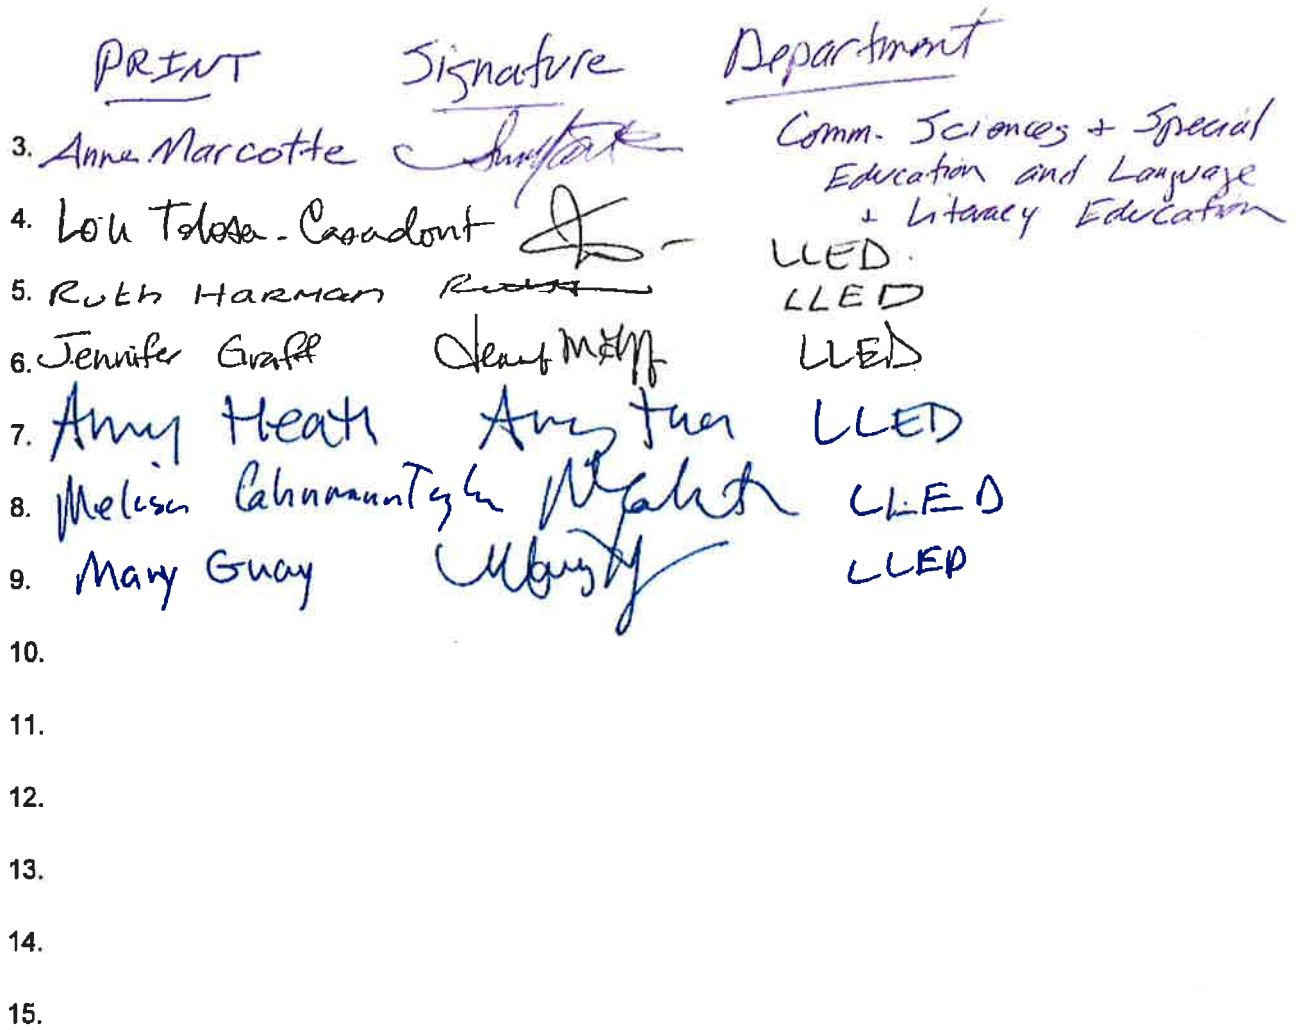 PRINT Signature Department
3. Anne Marcotte Comm. Sciences + Special
Education and Language
+ Literacy Education
4. Lou Tolosa-Casadont LLED.
5. Ruth Harman LLED
6. Jennifer Graff LLED
7. Amy Heath LLED
8. Melisa Cahnmann Taylor LLED
9. Mary Guay LLED
10.
11.
12.
13.
14.
15.